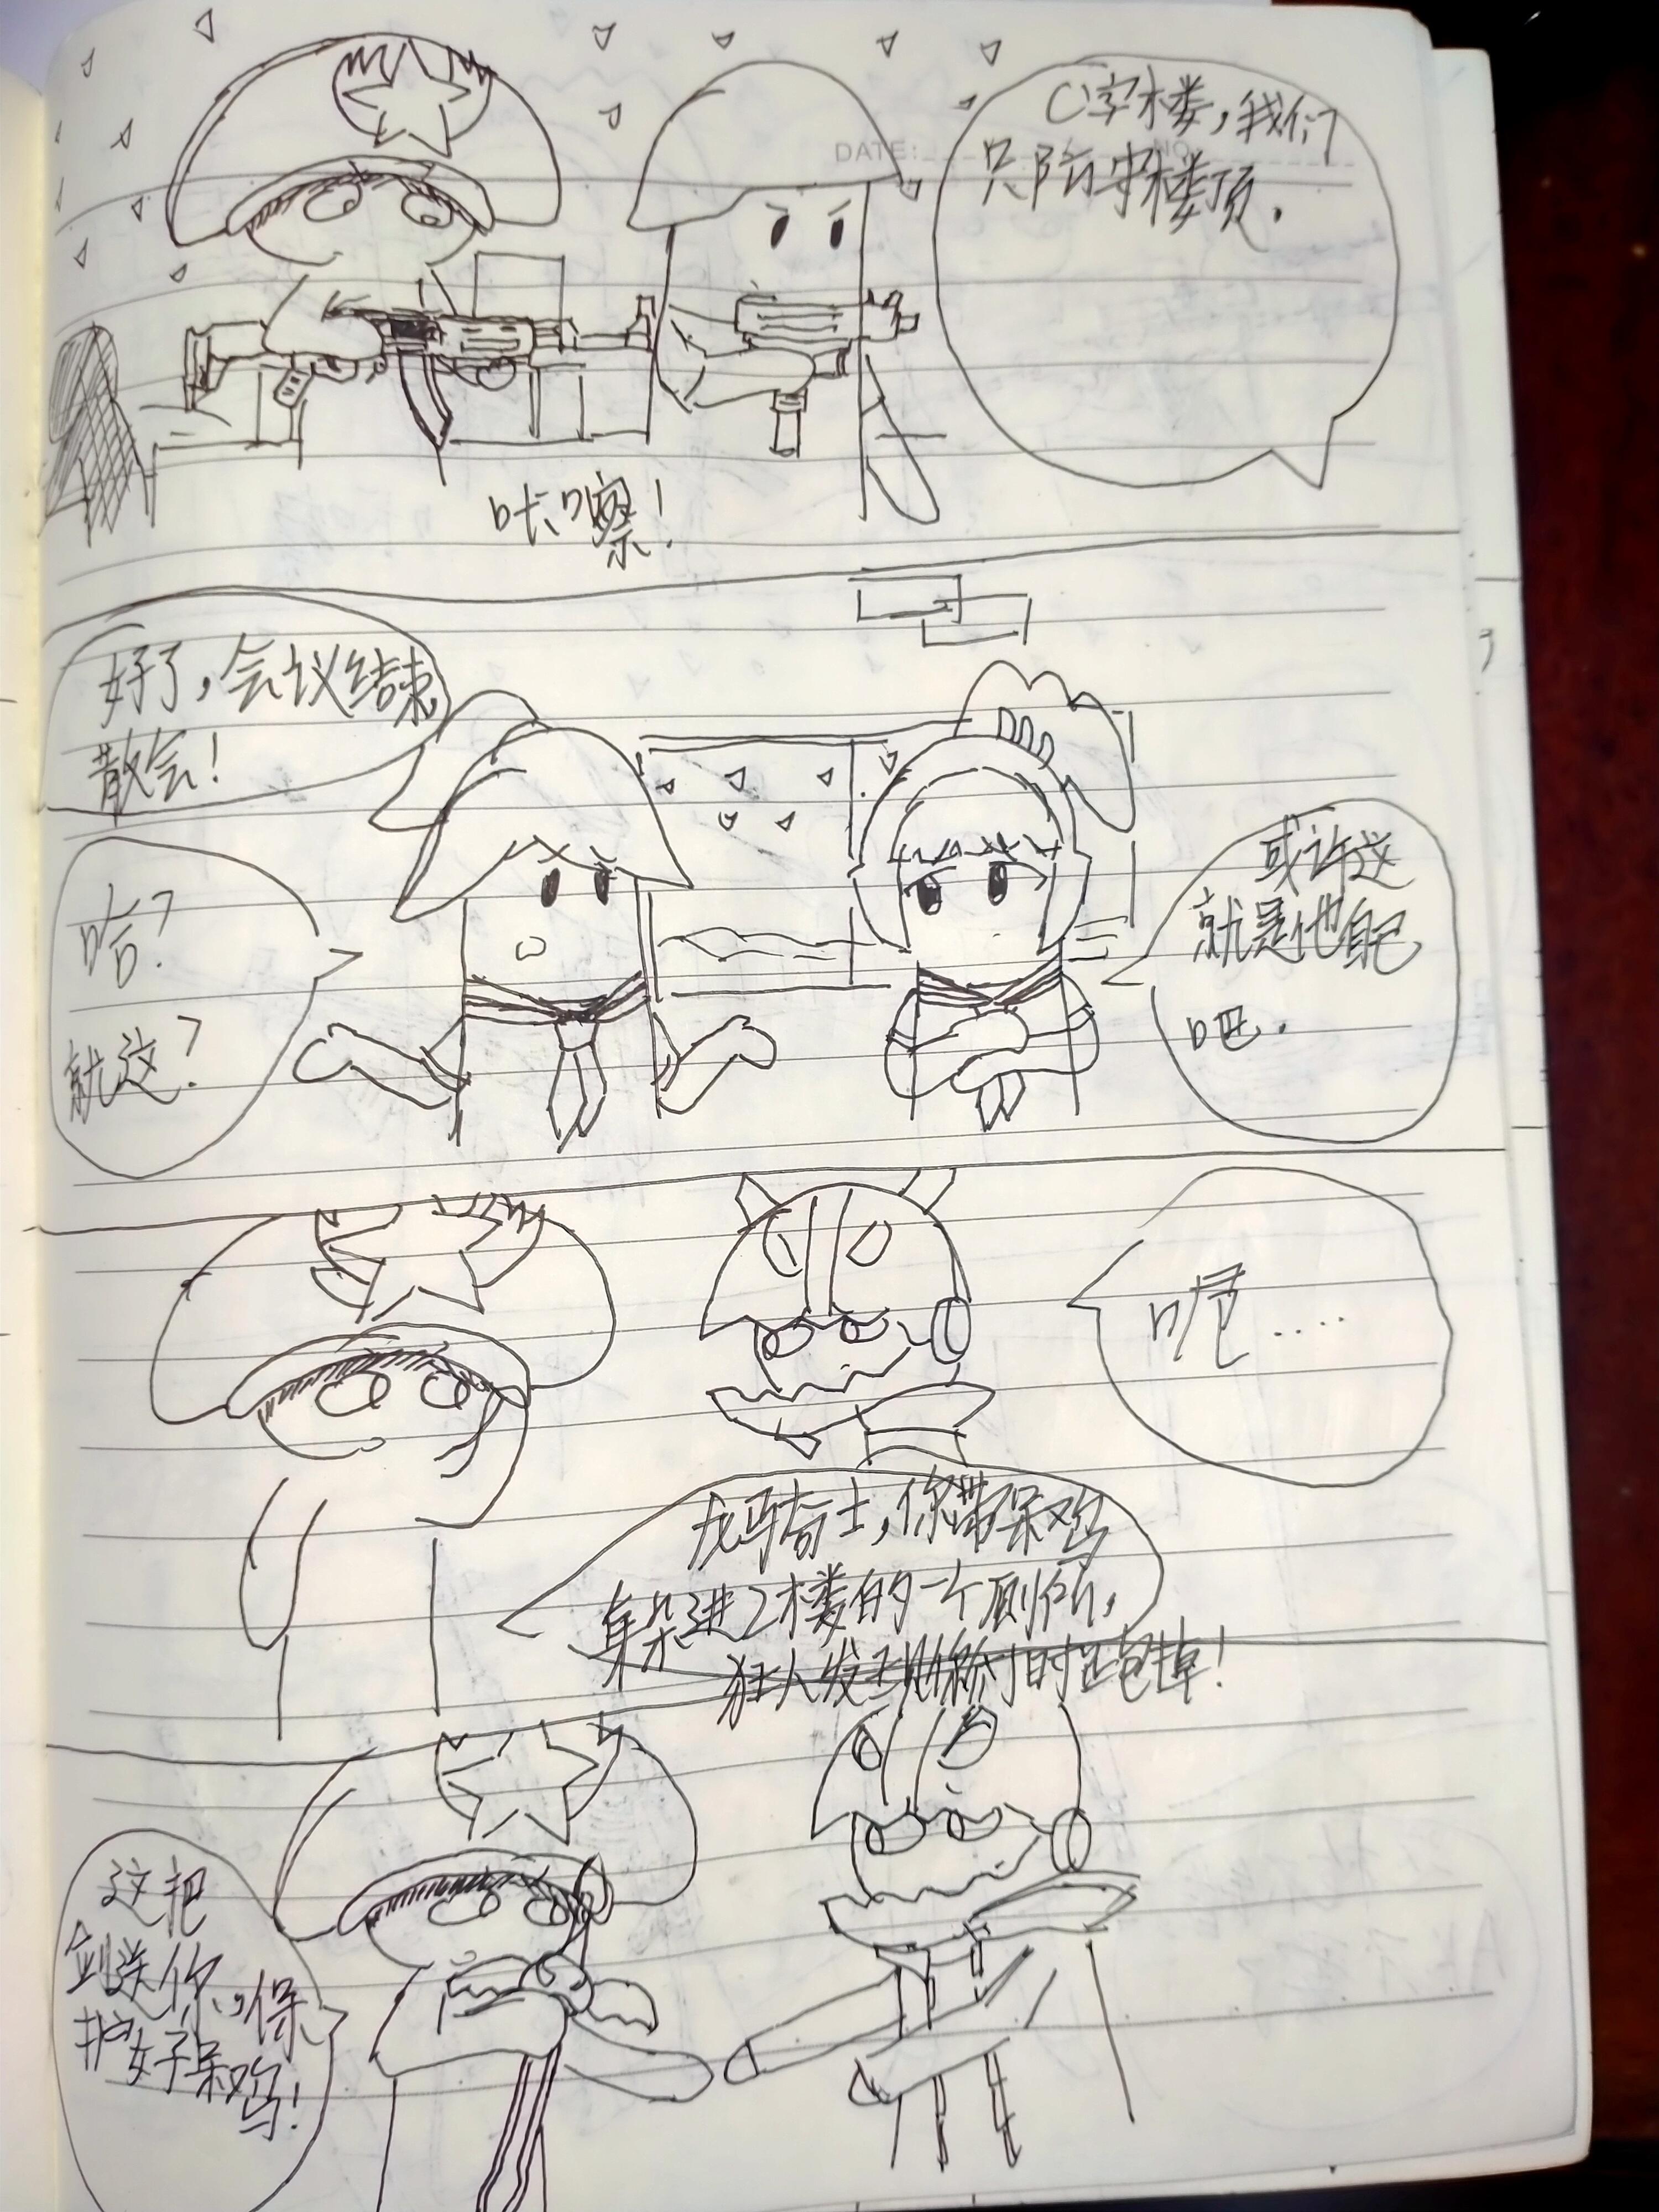 DATE:
NO.
C字楼,我们
只防守楼顶.
咔嚓!
好了,会议结束
散会!
哈?
就这?
或许这
就是他自己
吧.
呃....
龙马奇士,你带呆鸡
躲进2楼的一个厕所,
狂人发到你们时
这把
剑送你,保
护好呆鸡!